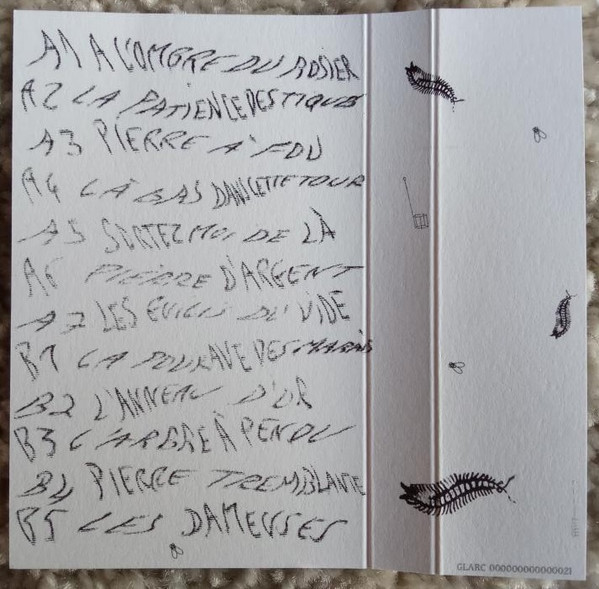 A1 A L'OMBRE DU ROSIER
A2 LA PATIENCE DES TIQUES
A3 PIERRE A FDU
A4 LÀ BAS DANS CETTE TOUR
A5 SORTEZ MOI DE LÀ
A6 PIERRE D'ARGENT
A7 LES DU VIDE
B1 LA DES MARAIS
B2 L'ANNEAU D'OR
B3 L'ARBRE À PENDU
B4 PIERRE TREMBLANTE
B5 LES DAMEUSES
GLARC 000000000000021